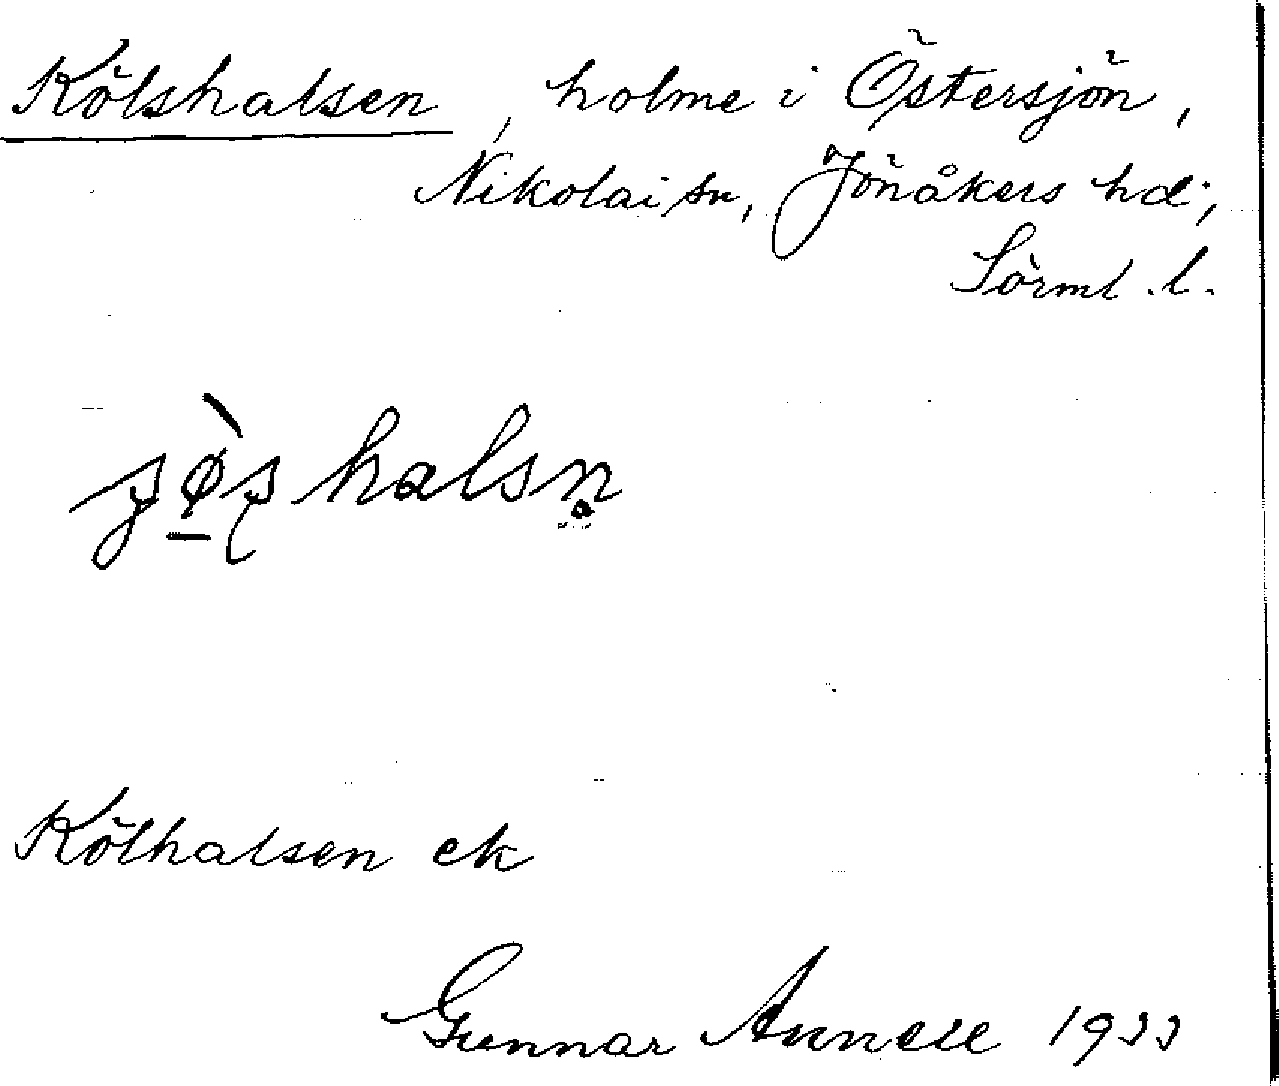 Kölshalsen, holme i Östersjön,
Nikolai sn, Jönåkers hd;
Sörml. l.
halsn̥
Kölhalsen ek
Gunnar Annell 1933